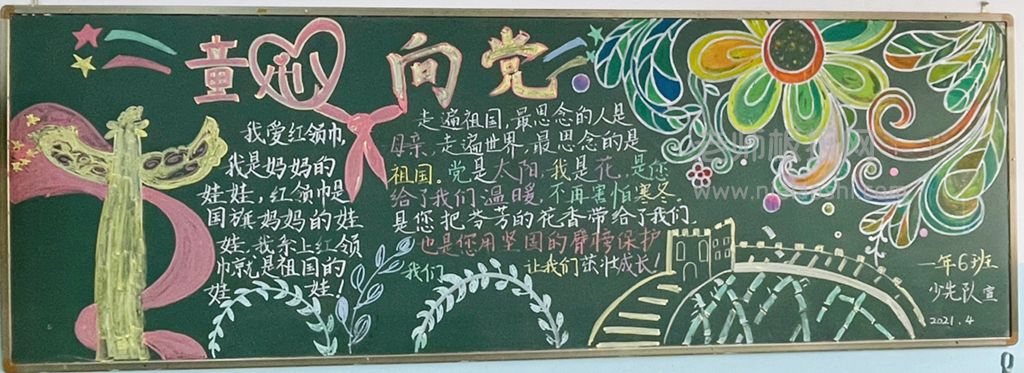 童心向党
我爱红领巾,
我是妈妈的
娃娃,红领巾是
国旗妈妈的娃
娃,我系上红领
巾就是祖国的
娃娃!
走遍祖国,最思念的人是
母亲,走遍世界,最思念的是
祖国。党是太阳,我是花,是您
给了我们温暖,不再害怕寒冬,
是您把芬芳的花香带给了我们.
也是您用坚固的臂膀保护
我们 让我们茁壮成长!
一年6班
少先队宣
2021.4